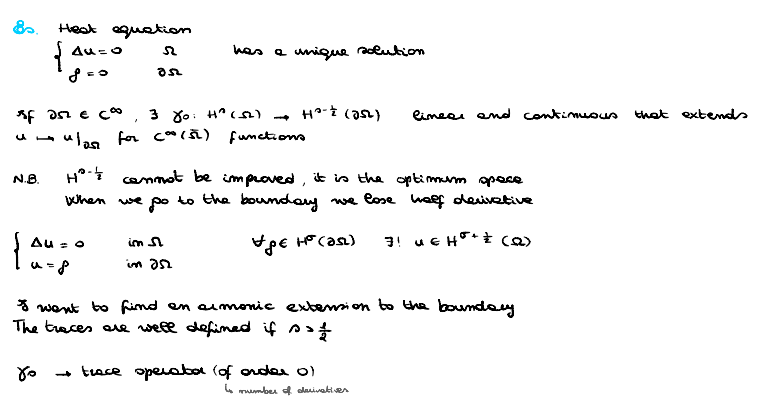 Es. Heat equation
{ Δu = 0   Ω   has a unique solution
ρ = 0   ∂Ω
If ∂Ω ∈ C^∞, ∃ γ₀: H^s(Ω) → H^{s-1/2}(∂Ω) linear and continuous that extends
u → u|_∂Ω for C^∞(Ω̄) functions
N.B. H^{s-1/2} cannot be improved, it is the optimum space
When we go to the boundary we lose half derivative
{ Δu = 0   in Ω   ∀ρ ∈ H^σ(∂Ω)   ∃! u ∈ H^{σ+1/2}(Ω)
u = ρ   in ∂Ω
I want to find an armonic extension to the boundary
The traces are well defined if s > 1/2
γ₀ → trace operator (of order 0)
↳ number of derivatives